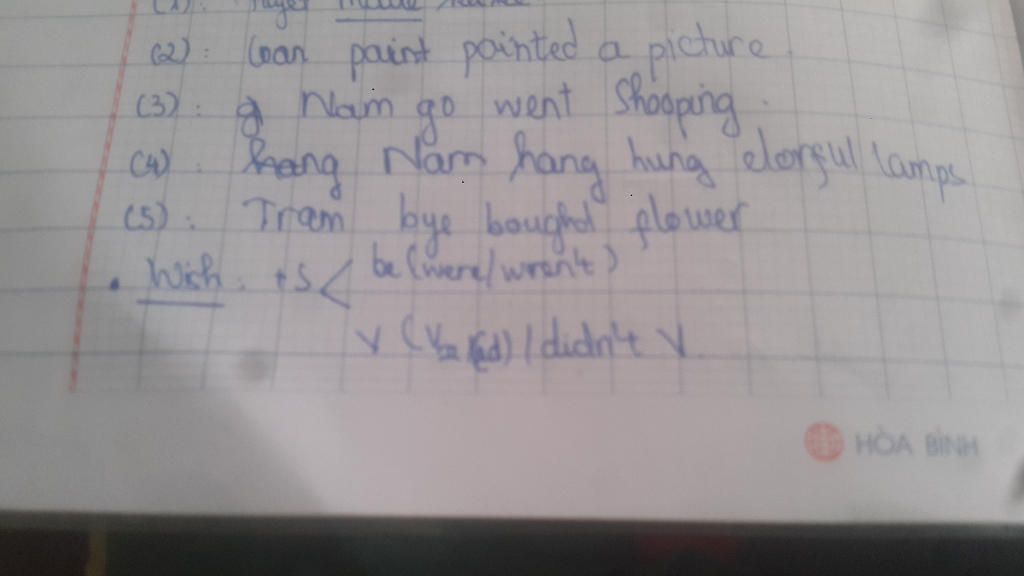 (2): Loan paint painted a picture.
(3): Nam go went Shooping.
(4): Nam hang hung clorful lamps
(5): Tram bye bought flower
• Wish: +S < be (were/weren't)
V (V2/ed) / didn't V.
HÒA BÌNH